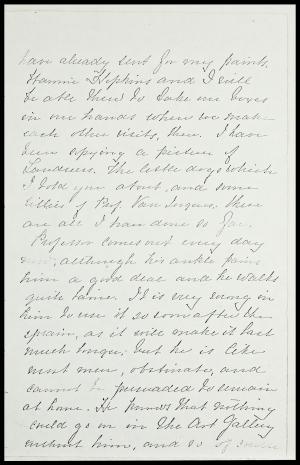 have already sent for my paints.
Hannie Hopkins and I will
be able then to take our boxes
in our hands when we make
each other visits, then. I have
been copying a picture of
Landseers. The little dogs which
I told you about, and some
lilies of Prof. Van Ingens. these
are all I have done so far.
Professor comes out every day
now, although his ankle pains
him a good deal and he walks
quite lame. It is very wrong in
him to use it so soon after the
sprain, as it will make it last
much longer. but he is like
most men, obstinate, and
cannot be persuaded to remain
at home. He knows that nothing
could go on in the Art Gallery
without him, and so of course